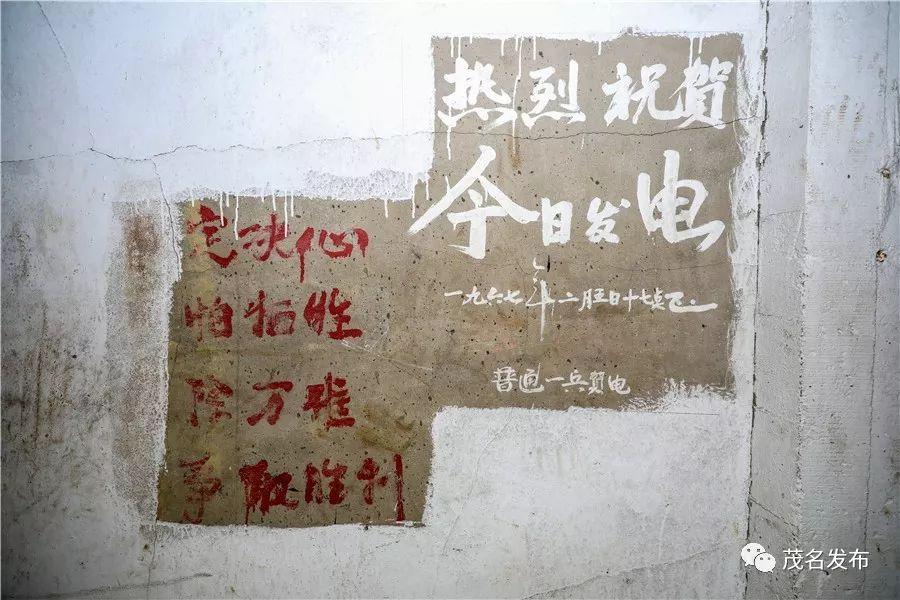 热烈祝賀
今日发电
一九六七年二月五日十七
普通一兵賀电
定决心
怕牺牲
除万难
争取胜利
茂名发布